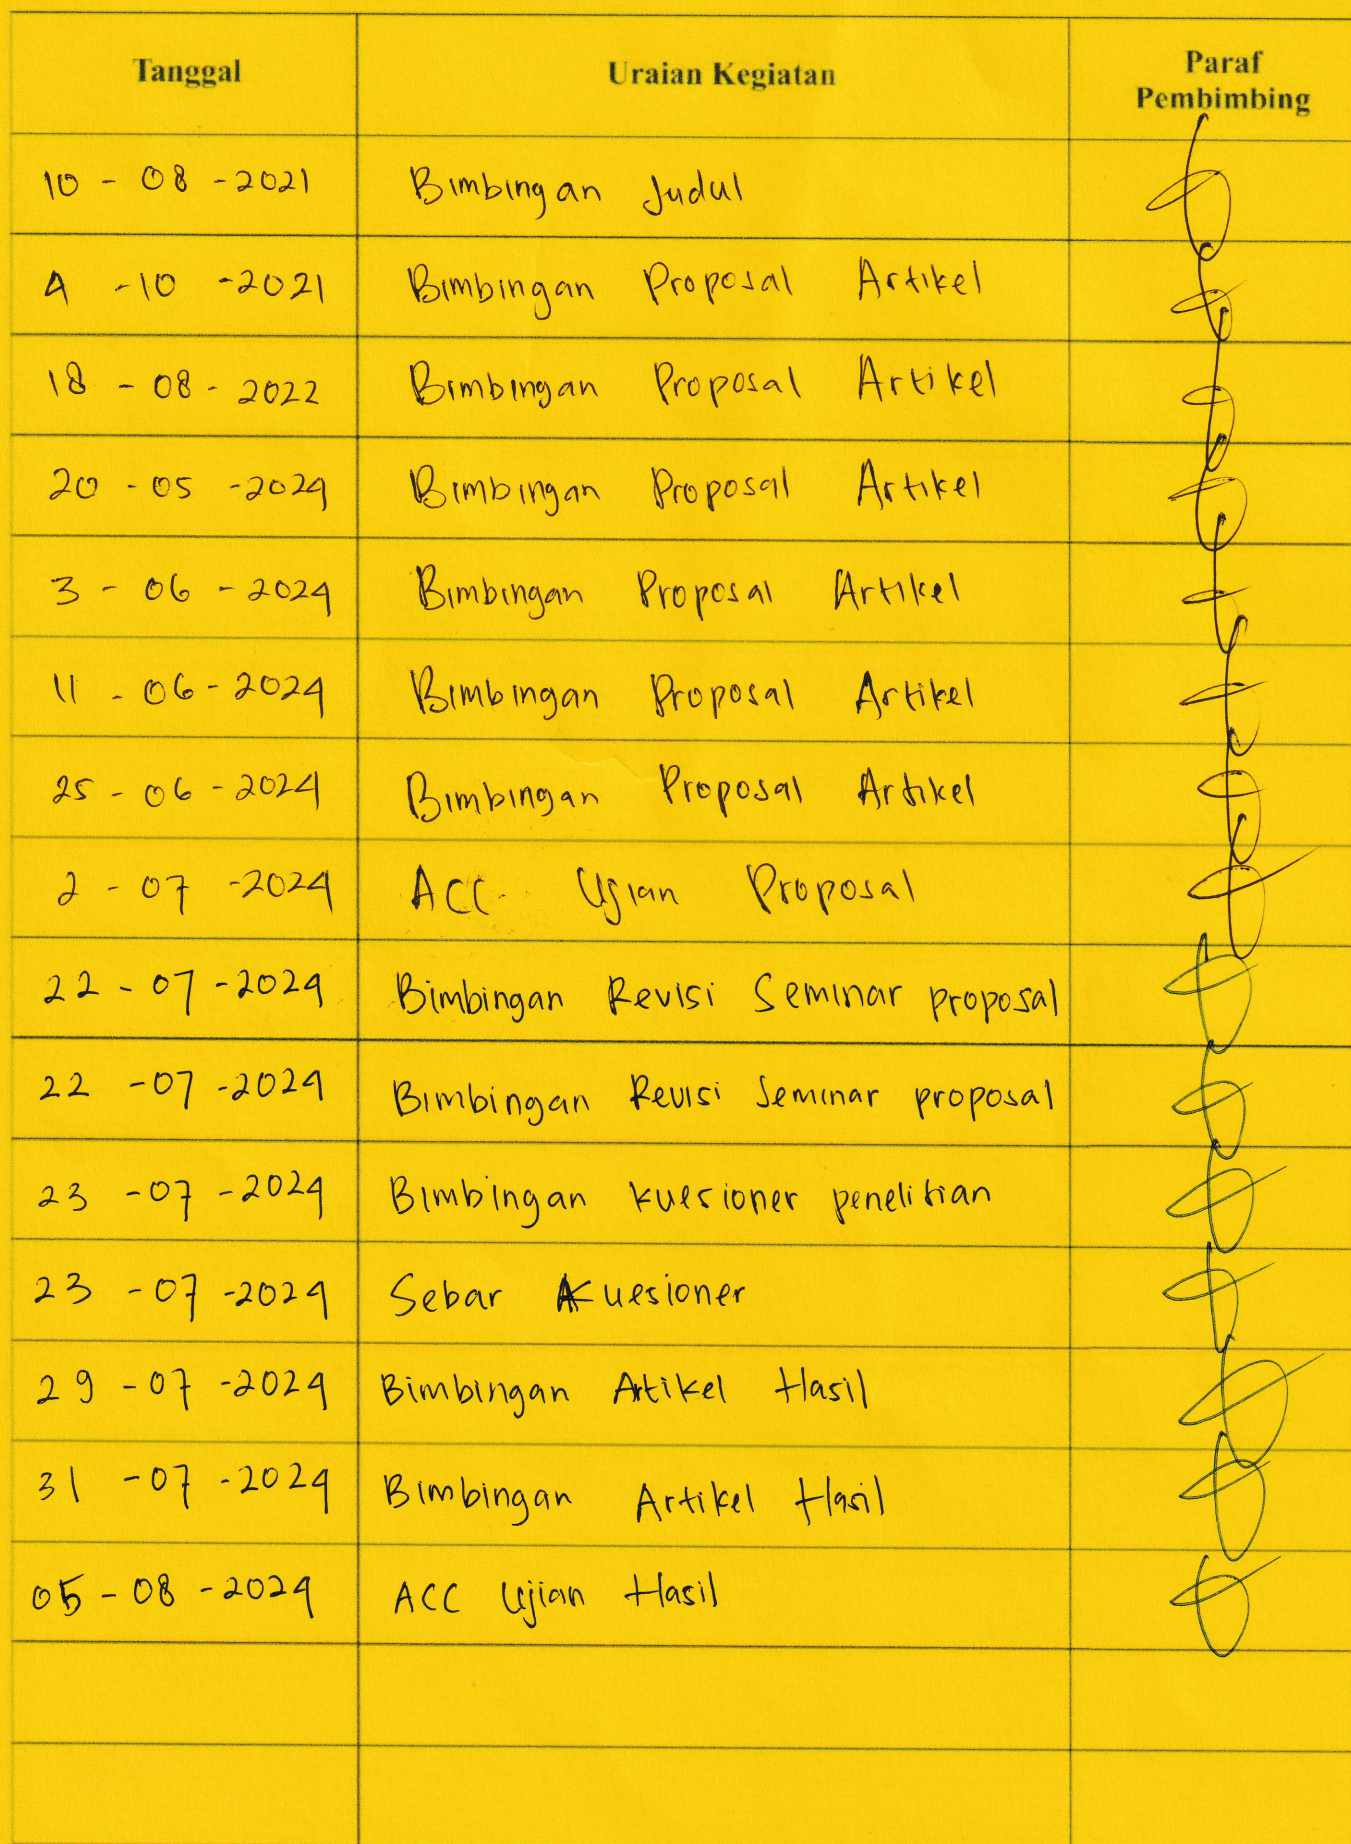 Tanggal Uraian Kegiatan Paraf
Pembimbing
10 - 08 - 2021 Bimbingan Judul
4 - 10 - 2021 Bimbingan Proposal Artikel
18 - 08 - 2022 Bimbingan Proposal Artikel
20 - 05 - 2024 Bimbingan Proposal Artikel
3 - 06 - 2024 Bimbingan Proposal Artikel
11 - 06 - 2024 Bimbingan Proposal Artikel
25 - 06 - 2024 Bimbingan Proposal Artikel
2 - 07 - 2024 ACC Ujian Proposal
22 - 07 - 2024 Bimbingan Revisi Seminar proposal
22 - 07 - 2024 Bimbingan Revisi Seminar proposal
23 - 07 - 2024 Bimbingan kuesioner penelitian
23 - 07 - 2024 Sebar Kuesioner
29 - 07 - 2024 Bimbingan Artikel Hasil
31 - 07 - 2024 Bimbingan Artikel Hasil
05 - 08 - 2024 ACC Ujian Hasil